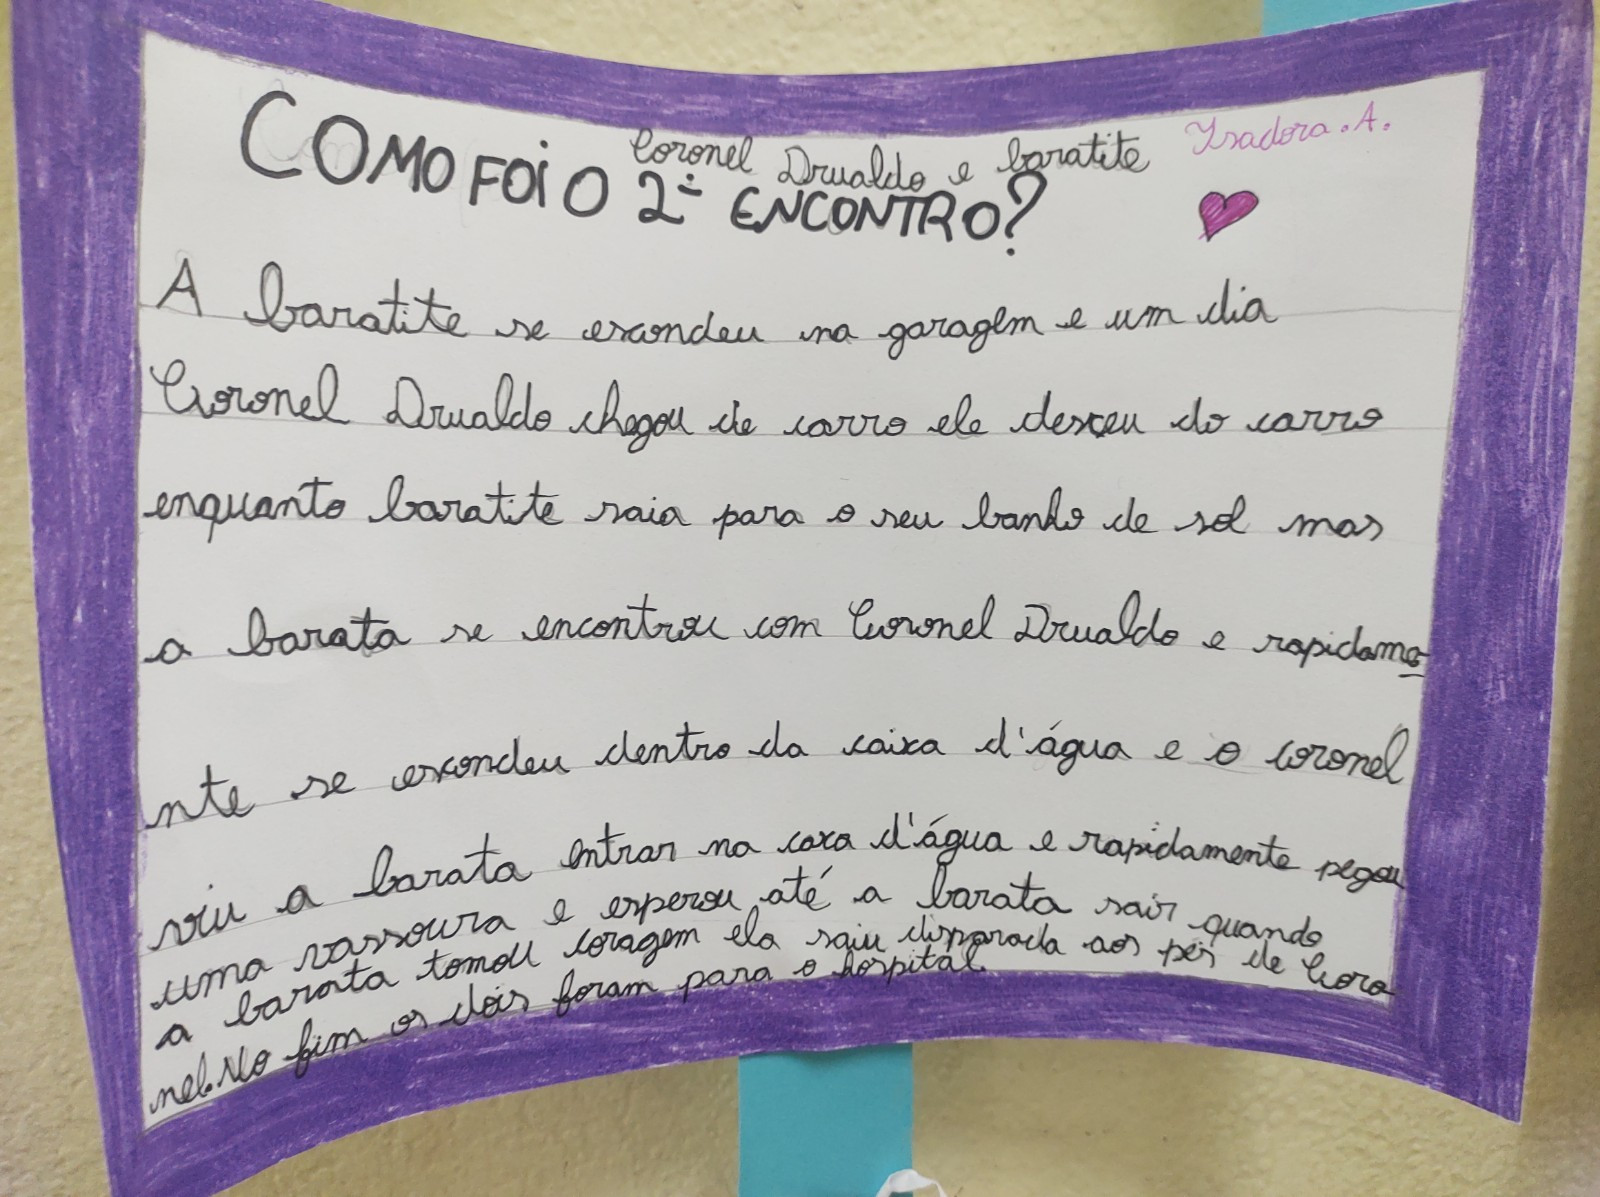 Coronel Drualdo e baratite
Isadora.A.
COMO FOI O 2º ENCONTRO?
A baratite se escondeu na garagem e um dia
Coronel Drualdo chegou de carro ele desceu do carro
enquanto baratite saia para o seu banho de sol mas
a barata se encontrou com Coronel Drualdo e rapidame
nte se escondeu dentro da caixa d'água e o coronel
viu a barata entrar na caxa d'água e rapidamente pegou
uma vassoura e esperou até a barata sair quando
a barata tomou coragem ela saiu disparada aos pés de Coro
nel. No fim os dois foram para o hospital.